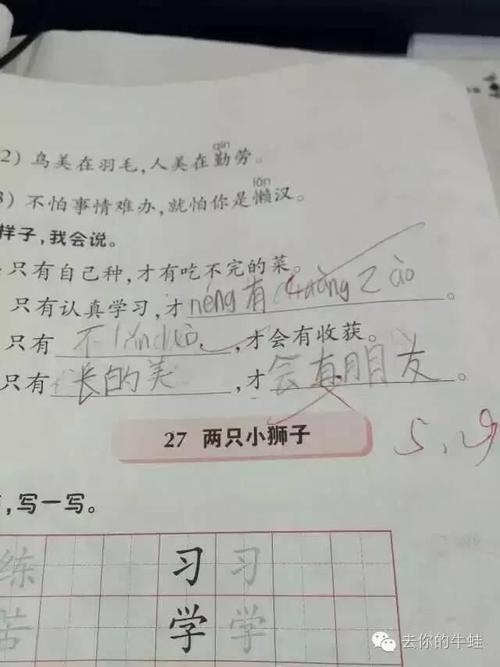 qín
2) 鸟美在羽毛,人美在勤劳。
lǎn
3) 不怕事情难办,就怕你是懒汉。
样子,我会说。
只有自己种,才有吃不完的菜。
只有认真学习,才néng有chuàng zào。
只有 不 ,才会有收获。
只有 长的美 ,才会有朋友。
27 两只小狮子
,写一写。
练 习 习
苦 学 学
去你的牛蛙